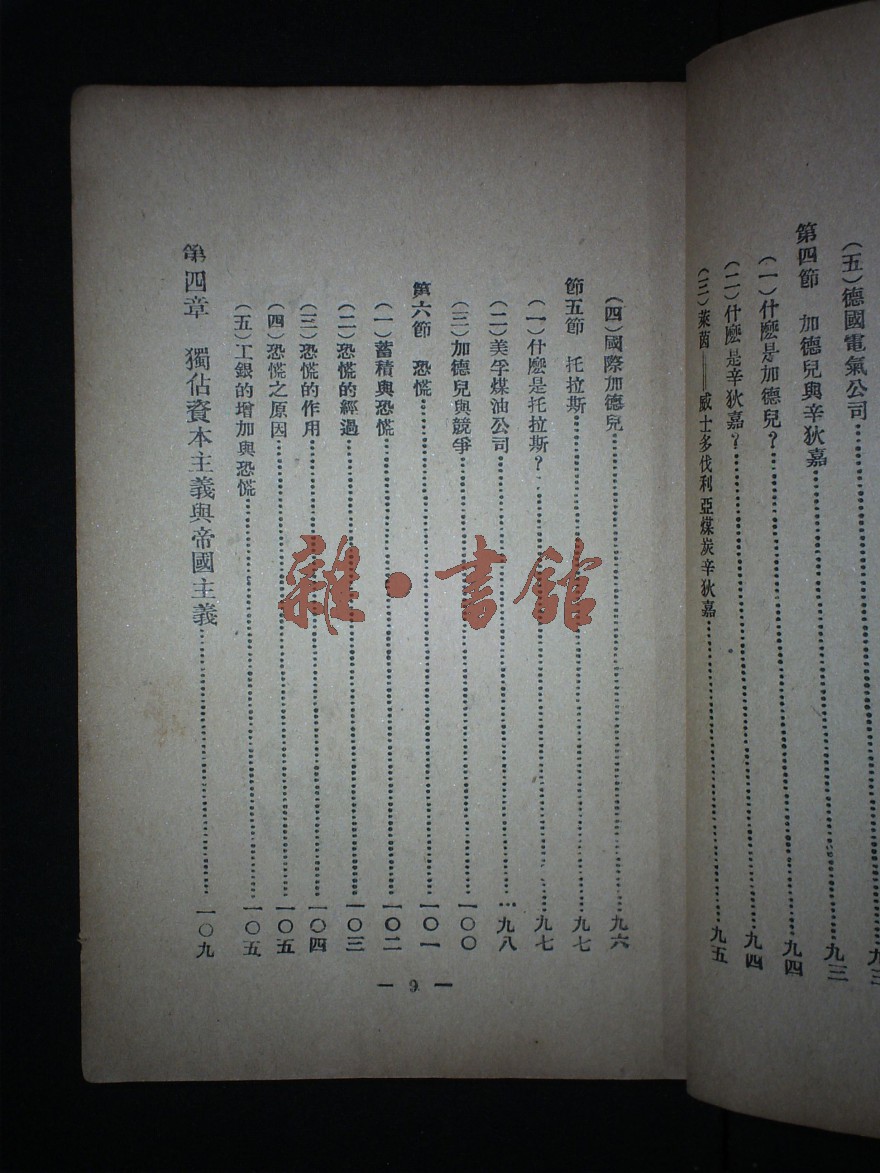 （五）德國電氣公司……九三
第四節　加德兒與辛狄嘉……九三
（一）什麼是加德兒？……九四
（二）什麼是辛狄嘉？……九四
（三）萊茵——威士多伐利亞煤炭辛狄嘉……九五
（四）國際加德兒……九六
節五節　托拉斯……九七
（一）什麼是托拉斯？……九七
（二）美孚煤油公司……九八
（三）加德兒與競爭……一〇〇
第六節　恐慌……一〇一
（一）蓄積與恐慌……一〇二
（二）恐慌的經過……一〇三
（三）恐慌的作用……一〇四
（四）恐慌之原因……一〇五
（五）工銀的增加與恐慌……一〇五
第四章　獨佔資本主義與帝國主義……一〇九
— 9 —
雜·書館